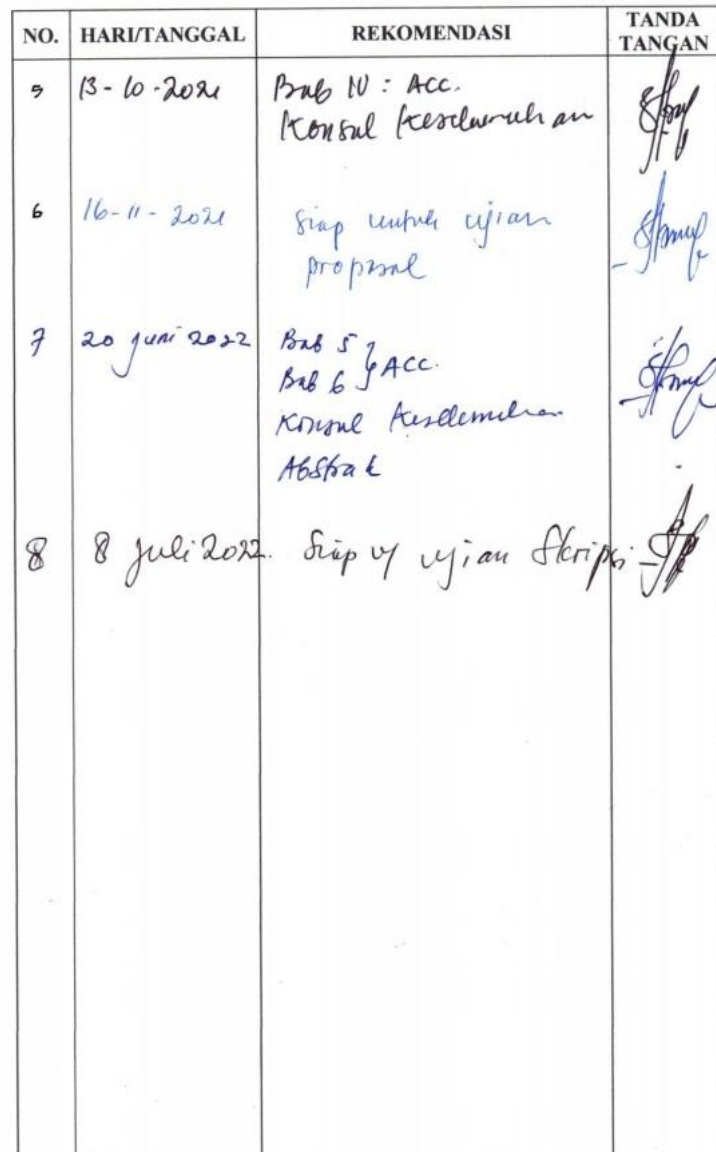 NO. HARI/TANGGAL REKOMENDASI TANDA TANGAN
5 13-10-2021 Bab IV : Acc.
Konsul Keseluruhan
6 16-11-2021 Siap untuk ujian
proposal
7 20 Juni 2022 Bab 5
Bab 6 } Acc.
Konsul Keseluruhan
Abstrak
8 8 Juli 2022. Siap u/ ujian Skripsi